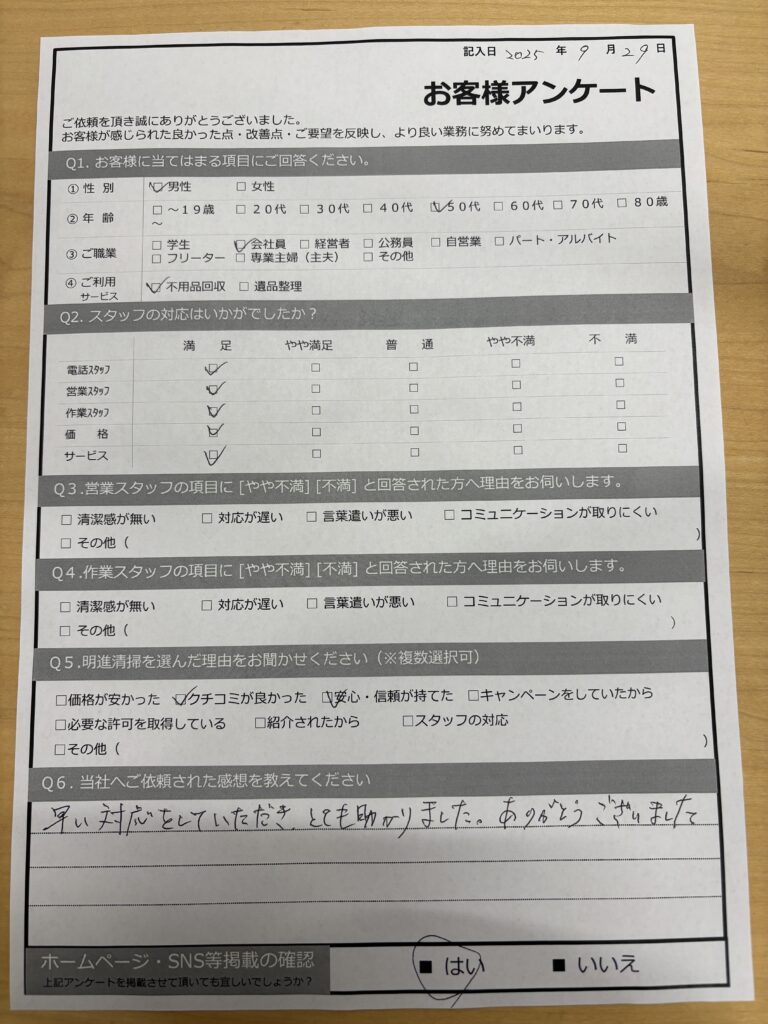 記入日 2025 年 9 月 29 日
お客様アンケート
ご依頼を頂き誠にありがとうございました。
お客様が感じられた良かった点・改善点・ご要望を反映し、より良い業務に努めてまいります。
Q1. お客様に当てはまる項目にご回答ください。
① 性 別 ☑男性 □ 女性
② 年 齢 □ ～１９歳 □ ２０代 □ ３０代 □ ４０代 ☑５０代 □ ６０代 □ ７０代 □ ８０歳
～
③ ご職業 □ 学生 ☑会社員 □ 経営者 □ 公務員 □ 自営業 □ パート・アルバイト
□ フリーター □ 専業主婦（主夫） □ その他
④ ご利用 ☑不用品回収 □ 遺品整理
サービス
Q2. スタッフの対応はいかがでしたか？
満 足 やや満足 普 通 やや不満 不 満
電話ｽﾀｯﾌ ☑ □ □ □ □
営業ｽﾀｯﾌ ☑ □ □ □ □
作業ｽﾀｯﾌ ☑ □ □ □ □
価 格 ☑ □ □ □ □
サービス ☑ □ □ □ □
Ｑ３.営業スタッフの項目に [やや不満] [不満] と回答された方へ理由をお伺いします。
□ 清潔感が無い □ 対応が遅い □ 言葉遣いが悪い □ コミュニケーションが取りにくい
□ その他（ ）
Ｑ４.作業スタッフの項目に [やや不満] [不満] と回答された方へ理由をお伺いします。
□ 清潔感が無い □ 対応が遅い □ 言葉遣いが悪い □ コミュニケーションが取りにくい
□ その他（ ）
Ｑ５.明進清掃を選んだ理由をお聞かせください（※複数選択可）
□価格が安かった ☑クチコミが良かった ☑安心・信頼が持てた □キャンペーンをしていたから
□必要な許可を取得している □紹介されたから □スタッフの対応
□その他（ ）
Ｑ６. 当社へご依頼された感想を教えてください
早い対応をしていただき、とても助かりました。ありがとうございました
ホームページ・SNS等掲載の確認 ■ はい ■ いいえ
上記アンケートを掲載させて頂いても宜しいでしょうか？